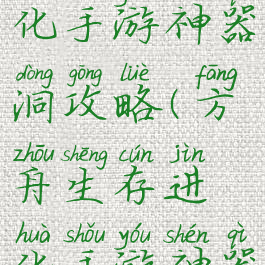 化手游神器
dòng gōng lüè fāng
洞攻略(方
zhōu shēng cún jìn
舟生存进
huà shǒu yóu shén qì
化手游神器